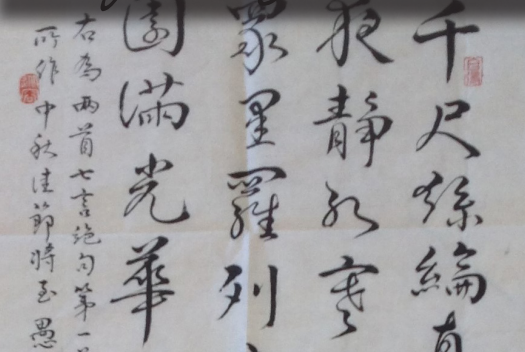 千尺絲綸直
夜靜水寒
眾星羅列
圓滿光華
右為兩首七言絕句第一首
所作中秋佳節將至愚